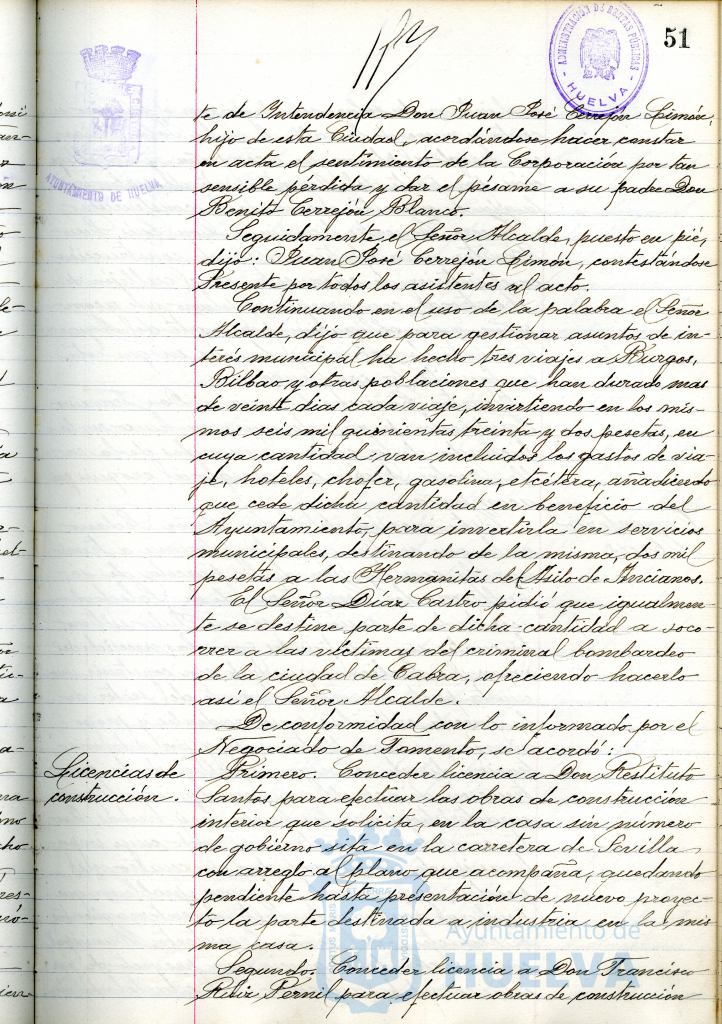 51
ADMINISTRACIÓN DE RENTAS PÚBLICAS
- HUELVA -
AYUNTAMIENTO DE HUELVA
te de Intendencia Don Juan José Cerrejón Limón,
hijo de esta Ciudad, acordándose hacer constar
en acta el sentimiento de la Corporación por tan
sensible pérdida y dar el pésame a su padre Don
Benito Cerrejón Blanco.
Seguidamente, el Señor Alcalde, puesto en pié,
dijo: Juan José Cerrejón Limón, contestándose
Presente por todos los asistentes al acto.
Continuando en el uso de la palabra el Señor
Alcalde, dijo que para gestionar asuntos de in-
terés municipal ha hecho tres viajes a Burgos,
Bilbao y otras poblaciones que han durado mas
de veinte dias cada viaje, invirtiendo en los mis-
mos seis mil quinientas treinta y dos pesetas, en
cuya cantidad van incluidos los gastos de via-
je, hoteles, chofer, gasolina, etcétera, añadiendo
que cede dicha cantidad en beneficio del
Ayuntamiento, para invertirla en servicios
municipales, destinando de la misma, dos mil
pesetas a las Hermanitas del Asilo de Ancianos.
El Señor Díaz Castro pidió que igualmen-
te se destine parte de dicha cantidad a soco-
rrer a las víctimas del criminal bombardeo
de la ciudad de Cabra, ofreciendo hacerlo
así el Señor Alcalde.
De conformidad con lo informado por el
Negociado de Fomento, se acordó:
Licencias de
construcción.
Primero. Conceder licencia a Don Restituto
Santos para efectuar las obras de construcción
interior que solicita, en la casa sin número
de gobierno sita en la carretera de Sevilla
con arreglo al plano que acompaña, quedando
pendiente hasta presentación de nuevo proyec-
to la parte destinada a industria en la mis
ma casa.
Segundo. Conceder licencia a Don Francisco
Ruiz Pernil para efectuar obras de construcción
Ayuntamiento de
HUELVA